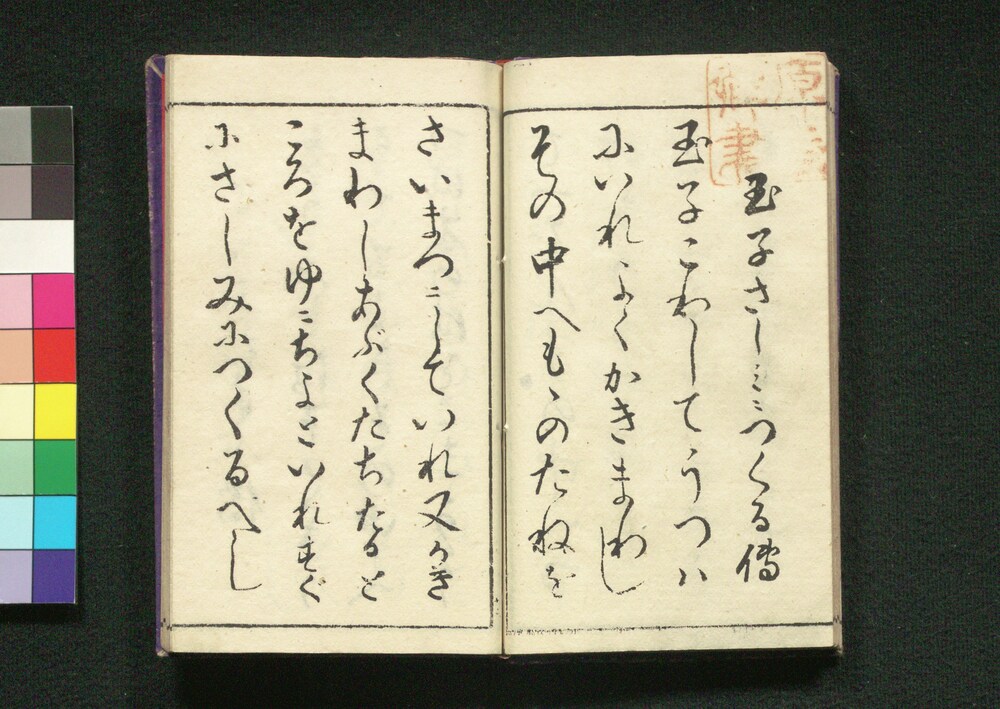 玉子さしミニつくる傳
玉子こわしてうつハ
にいれよくかきまわし
その中へもゝのたねを
さいまつニしていれ又かき
まわしあぶくたちたると
ころをゆニちよといれすぐ
にさしみにつくるべし